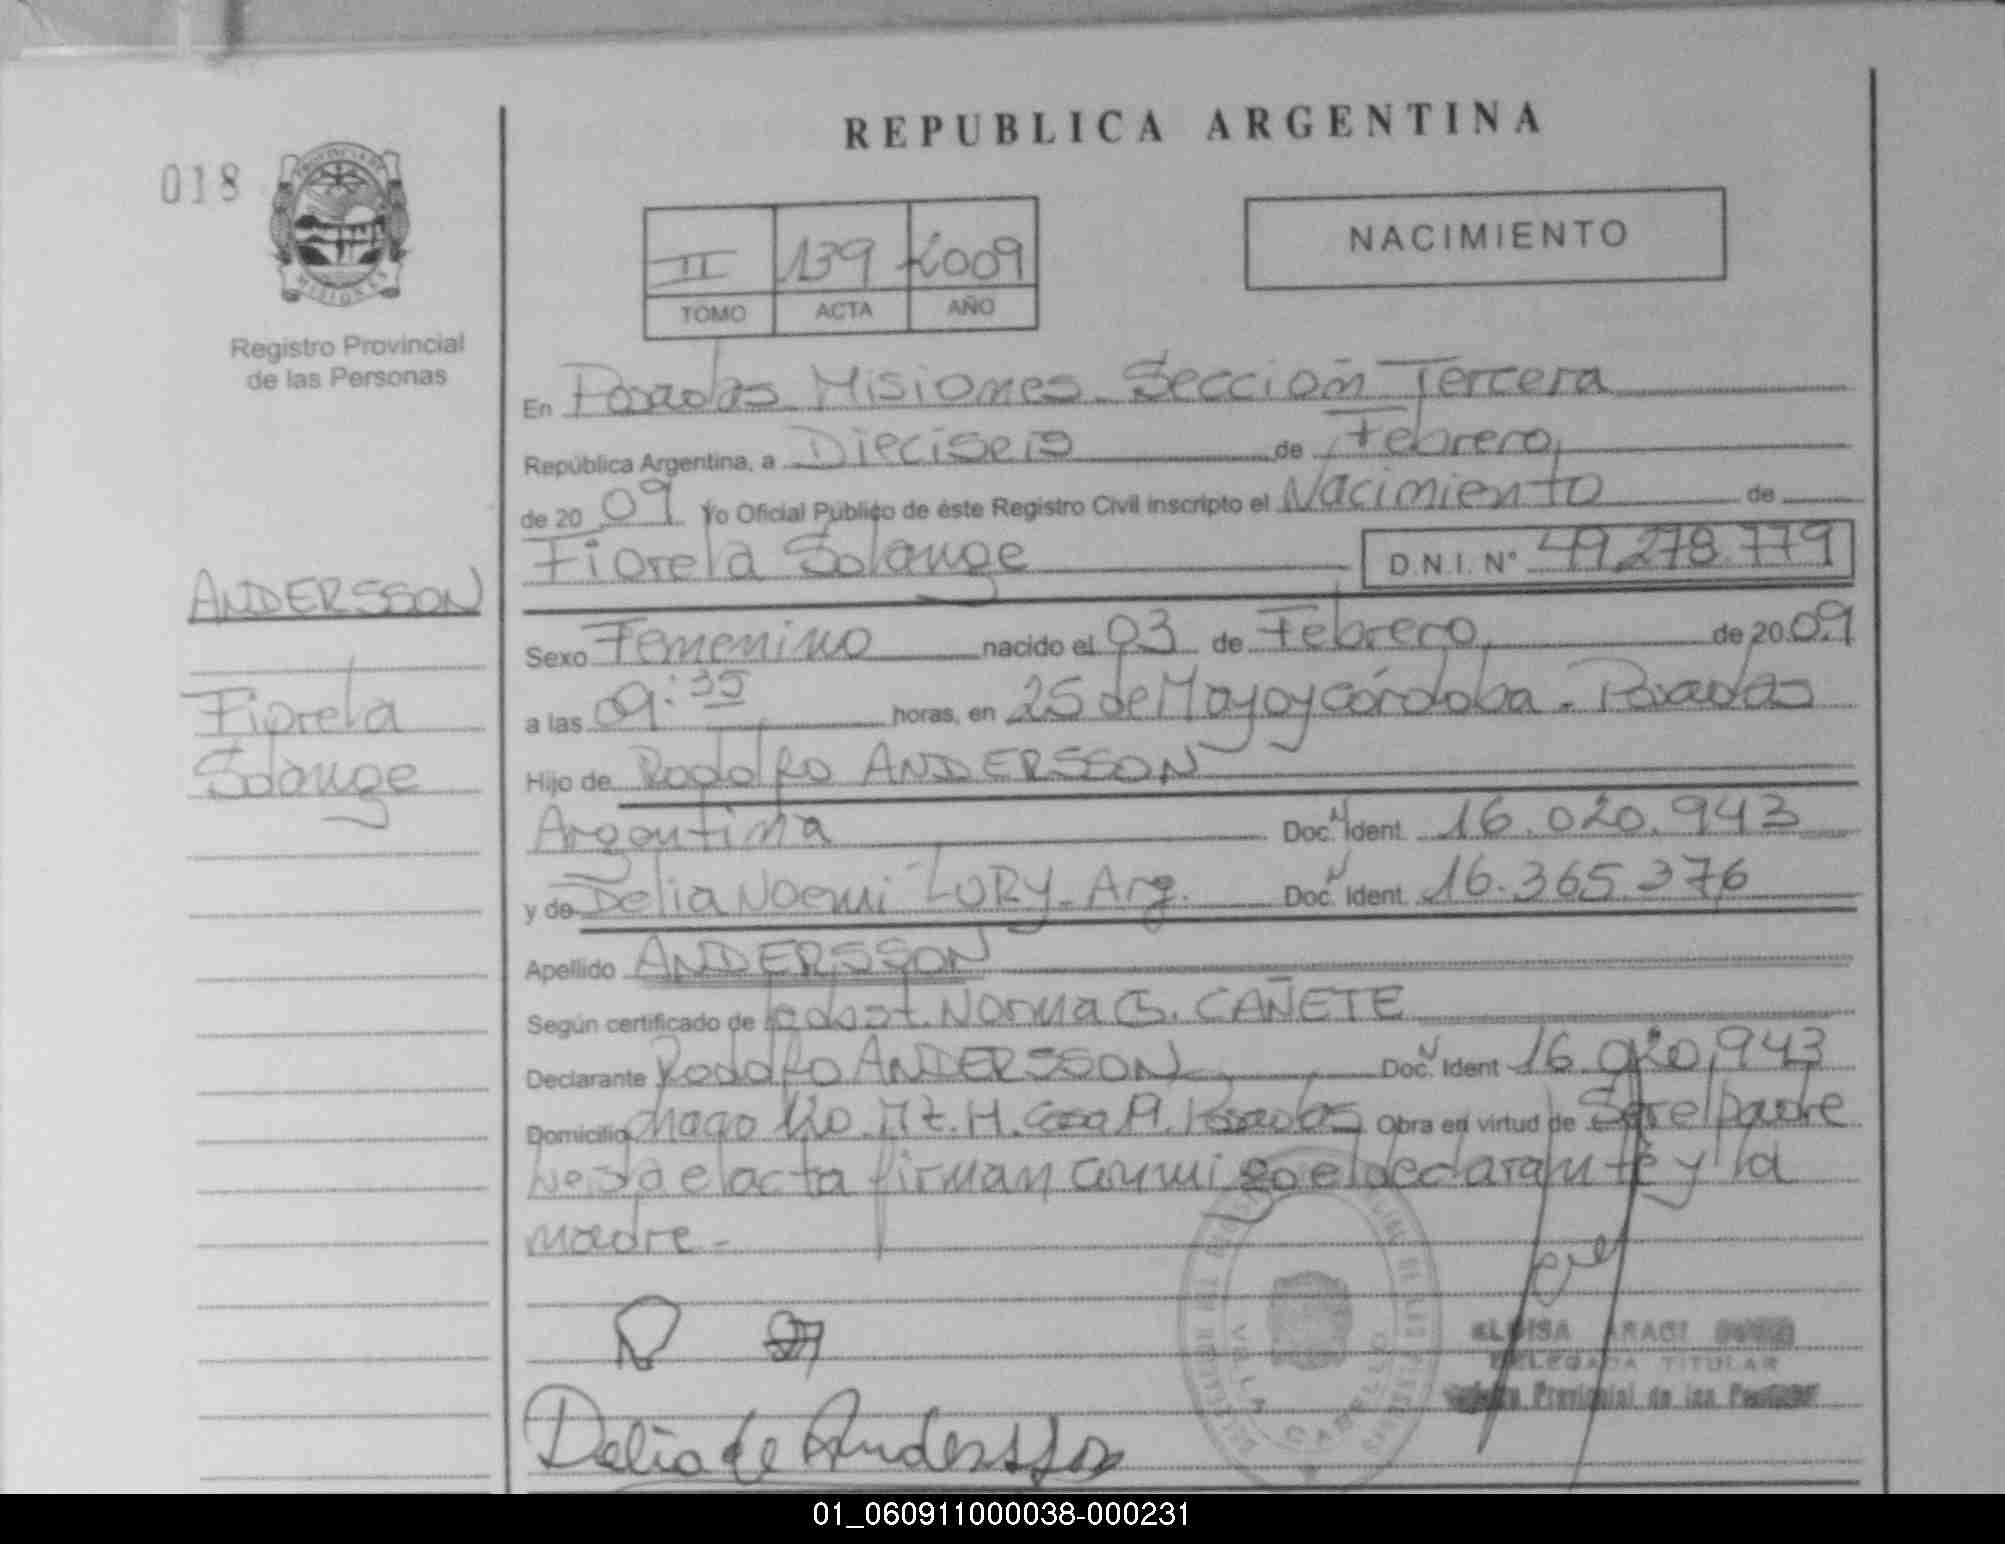 REPUBLICA ARGENTINA
018
PROVINCIA DE
MISIONES
NACIMIENTO
II 139 2009
TOMO ACTA AÑO
Registro Provincial
de las Personas
En Posadas Misiones. Sección Tercera
República Argentina, a Dieciseis de Febrero,
de 20 09 Yo Oficial Público de éste Registro Civil inscripto el Nacimiento de
Fiorela Solange D.N.I. Nº 49.278.779
ANDERSSON
Fiorela
Solange
Sexo Femenino nacido el 03 de Febrero de 20 09
a las 09:35 horas, en 25 de Mayo y córdoba. Posadas
Hijo de Rodolfo ANDERSSON
Argentina Doc. Ident. 16.020.943
y de Delia Noemi LORY. Arg. Doc. Ident. 16.365.376
Apellido ANDERSSON
Según certificado de Norma CAÑETE
Declarante Rodolfo ANDERSSON Doc. Ident 16.020.943
Domicilio H. Casa Posadas Obra en virtud de Ser el padre
el acta firman conmigo el declarante y la
madre.-
Delia de Andersson
DELEGADA TITULAR
Provincial de las
01_060911000038-000231